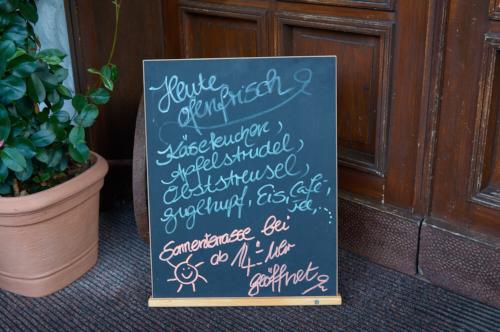 Heute
ofenfrisch
Käsekuchen,
Apfelstrudel,
Obststreusel,
gugelhupf, Eis, Café
Sonnenterrasse bei
ab 14:- Uhr
geöffnet